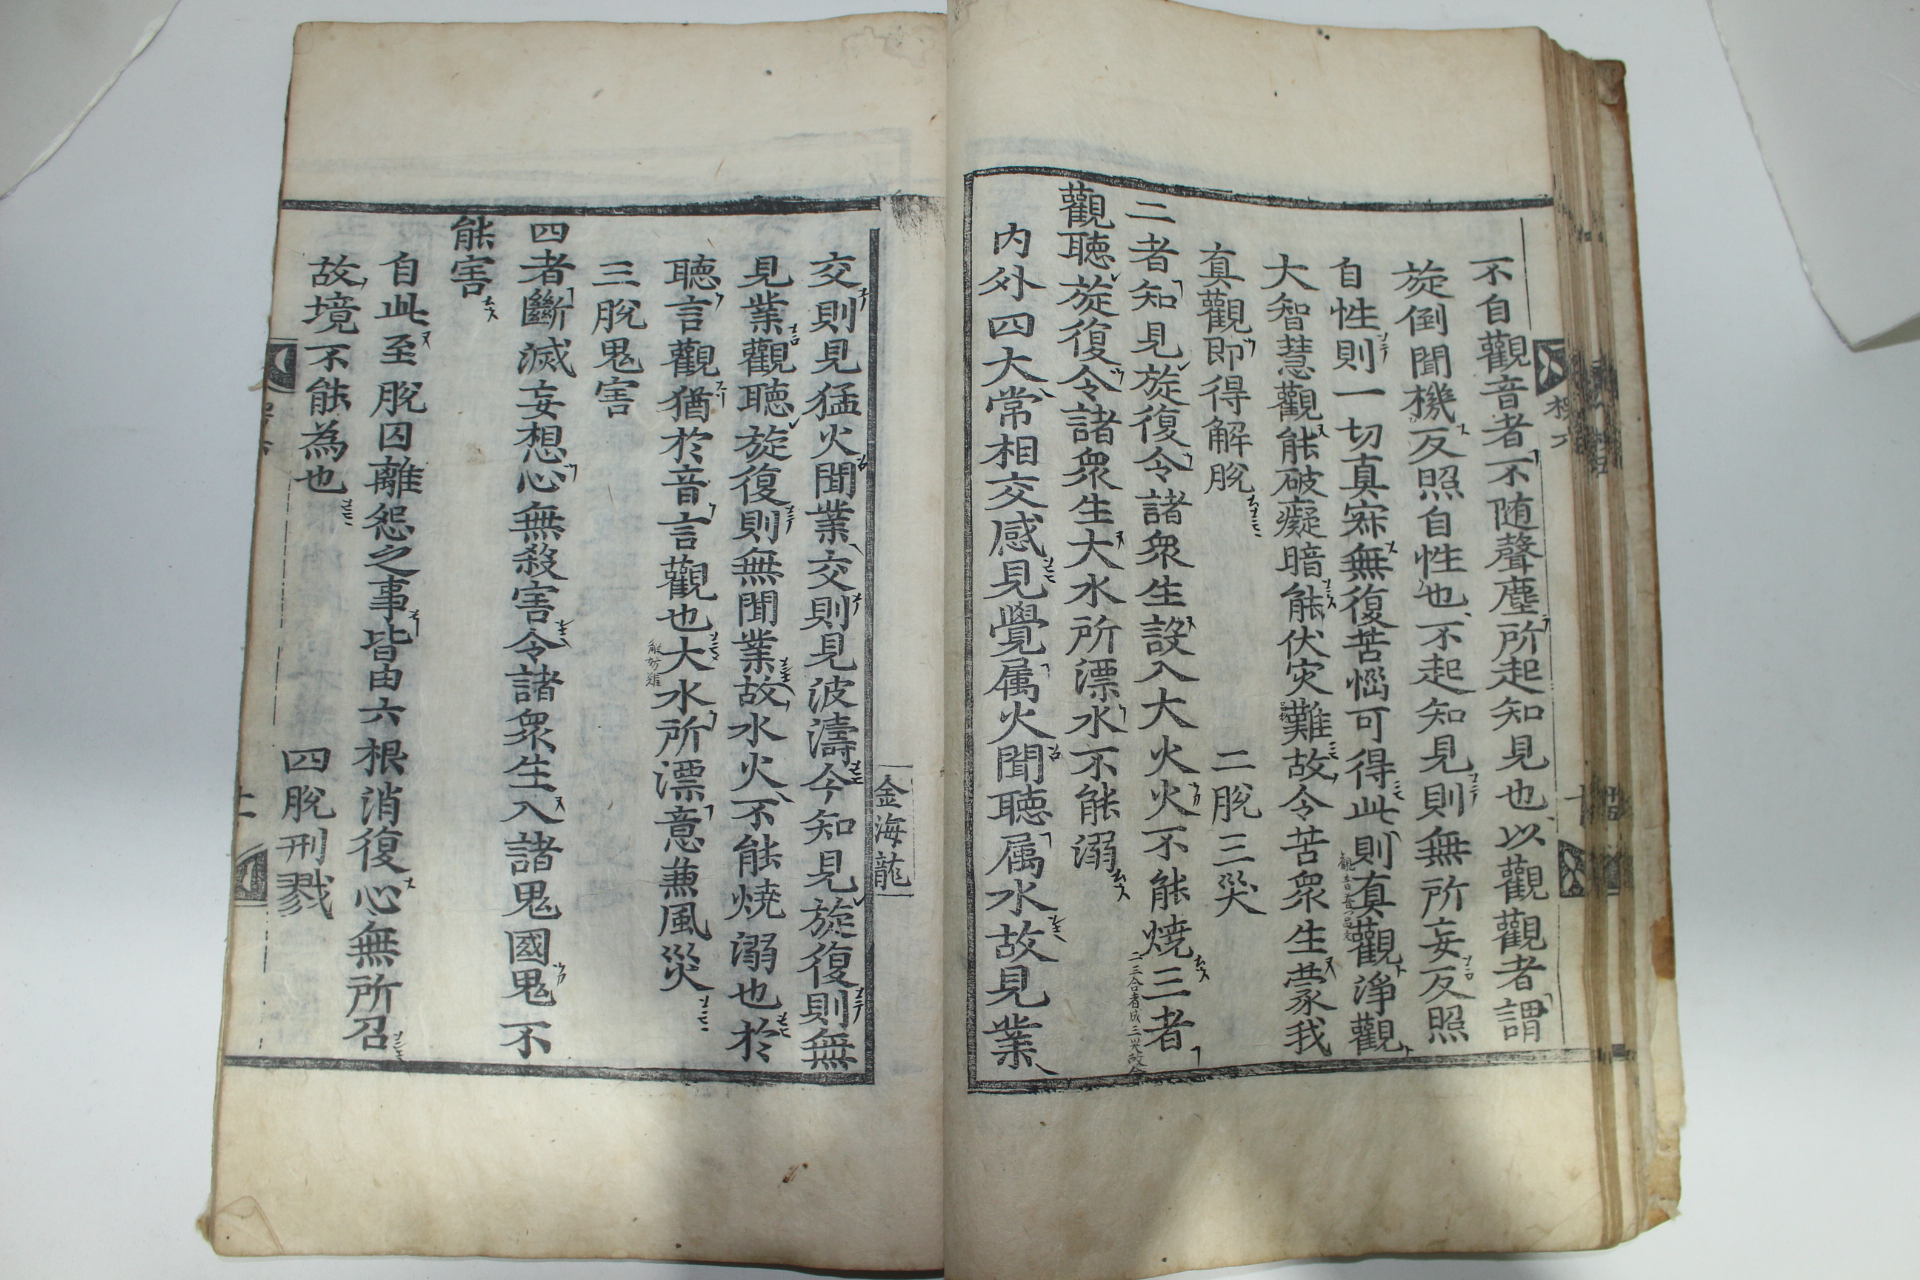 不自觀音者不随聲塵所起知見也以觀觀者謂
旋倒聞機反照自性也不起知見則無所妄反照
自性則一切真寂無復苦惱可得此則真觀淨觀
大智慧觀能破癡暗能伏灾難故令苦衆生蒙我
真觀即得解脫 二脫三灾
二者知見旋復令諸衆生設入大火火不能燒三者
觀聽旋復令諸衆生大水所漂水不能溺
内外四大常相交感見覺属火聞聽属水故見業
交則見猛火聞業交則見波濤今知見旋復則無
見業觀聽旋復則無聞業故水火不能燒溺也於
聽言觀猶於音言觀也大水所漂意兼風災
三脫鬼害
四者斷滅妄想心無殺害令諸衆生入諸鬼國鬼不
能害
自此至脫囚離怨之事皆由六根消復心無所召
故境不能為也 四脫刑戮
金海龍